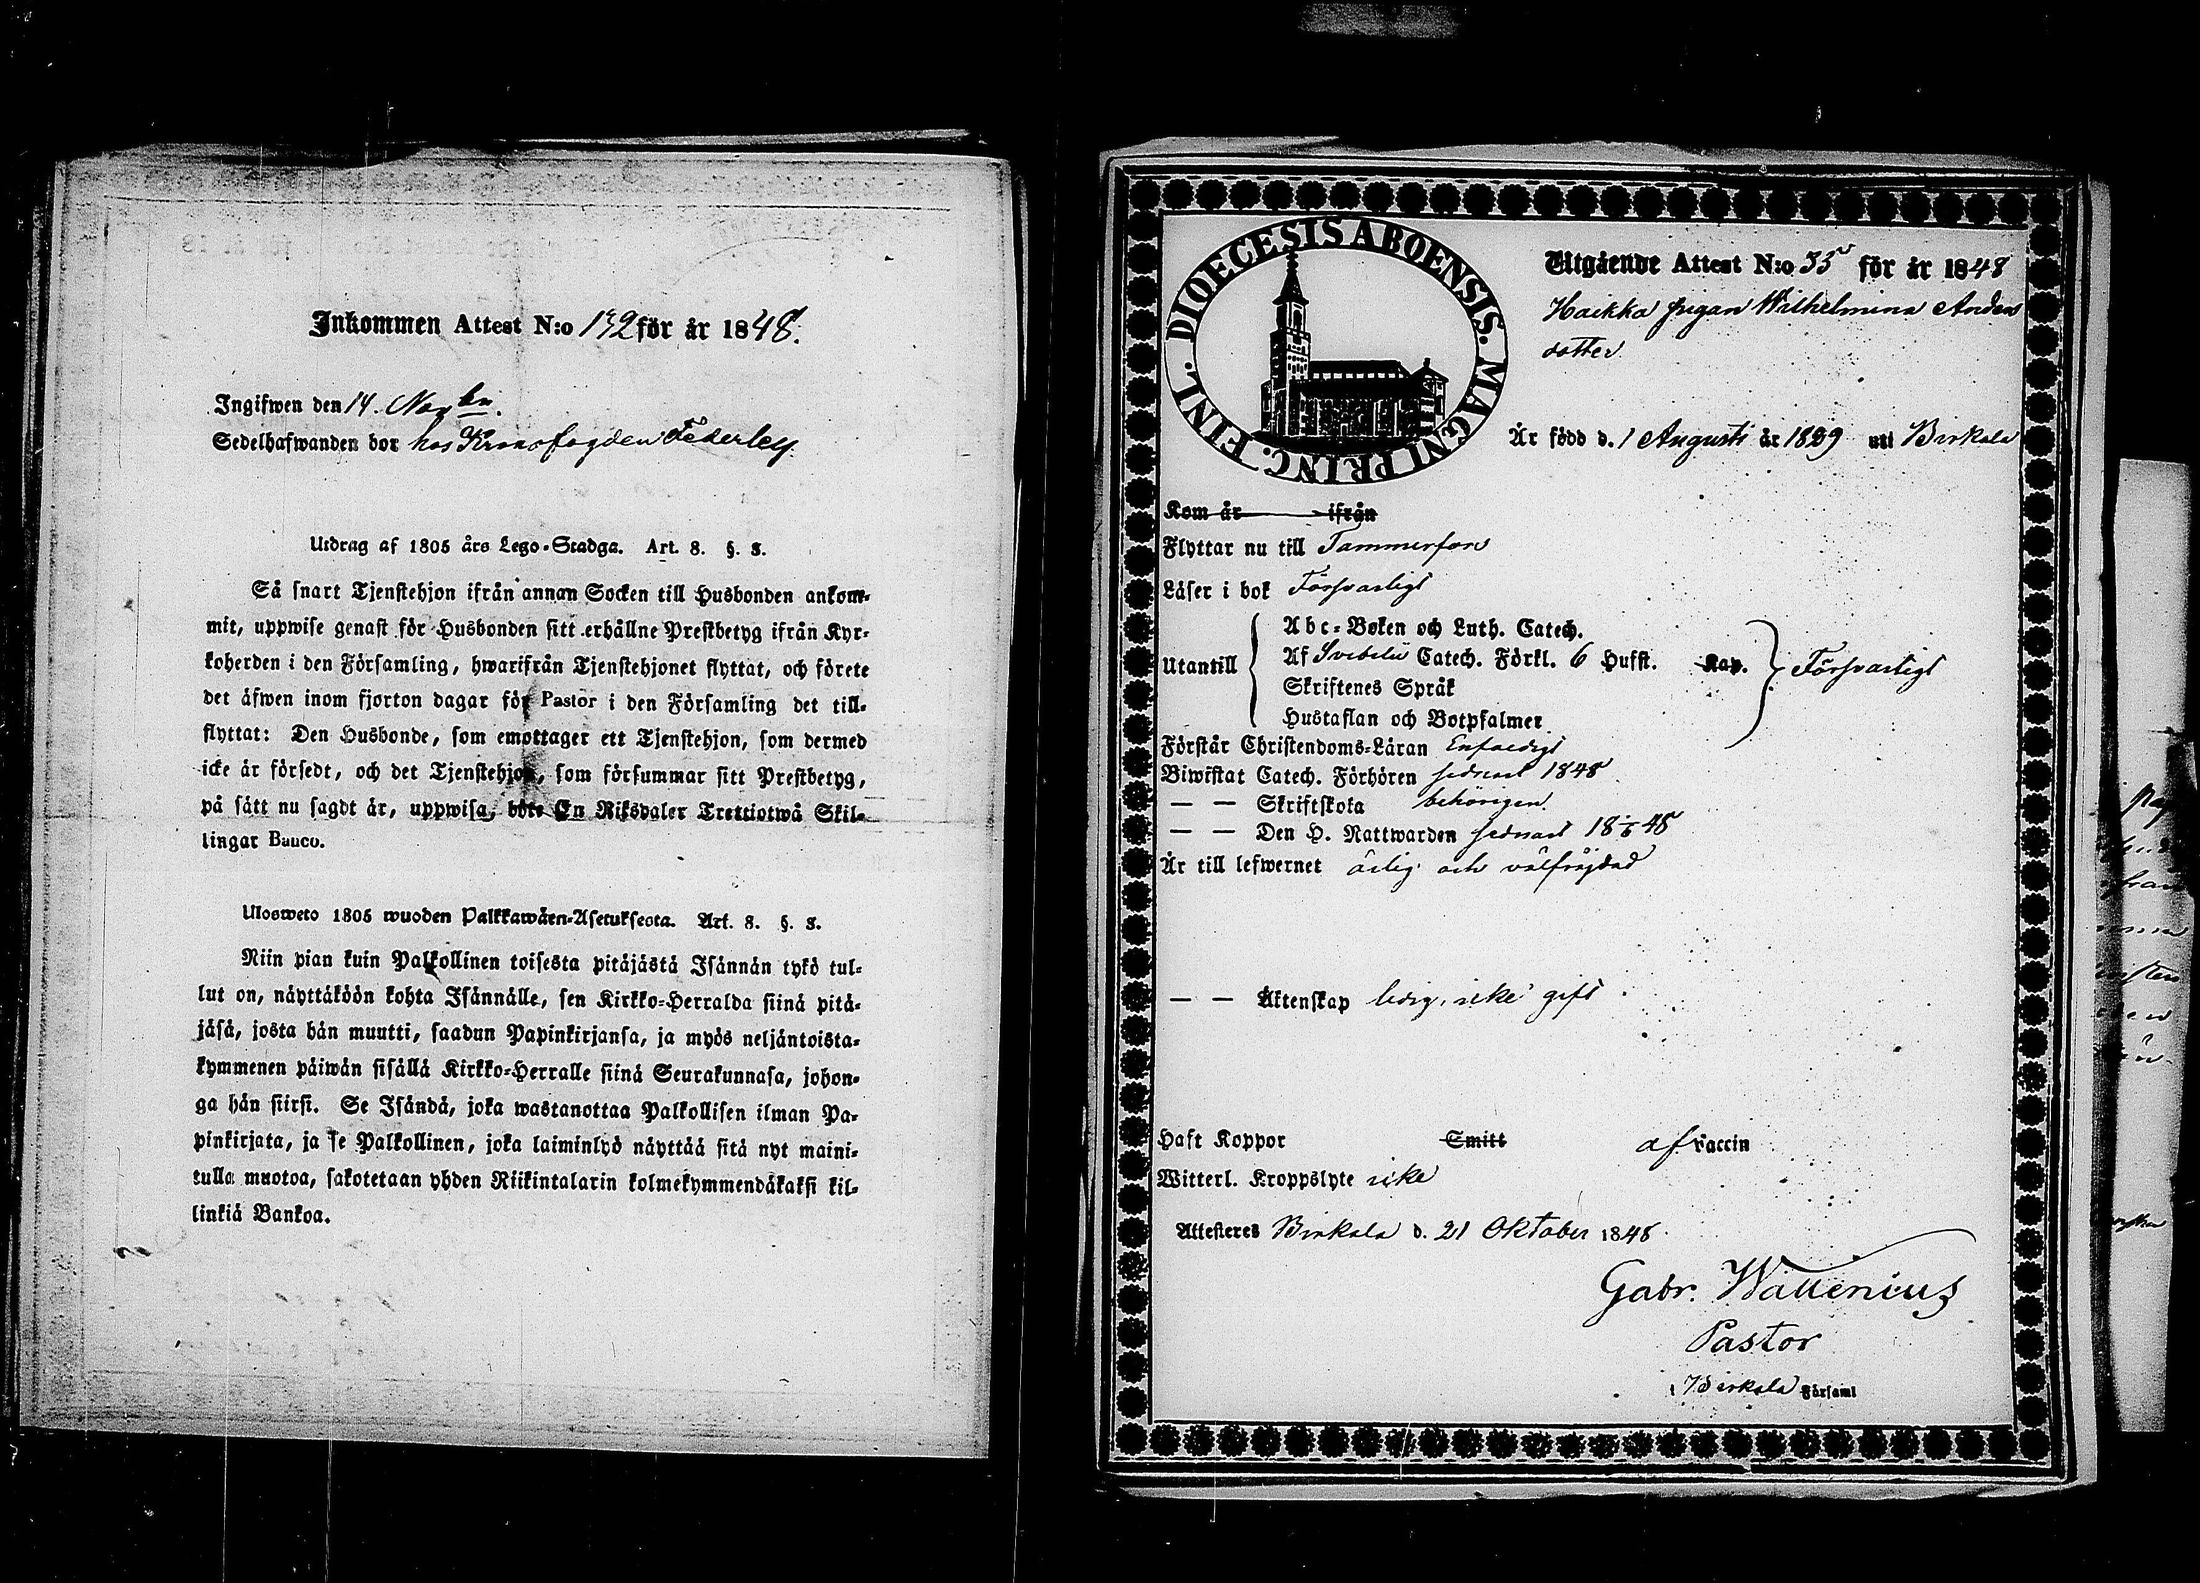 Inkommen Attest N:o 132 för år 1848.
Ingifwen den 14. Novbr.
Sedelhafwanden bor hos Kronofogden Federley.
Utdrag af 1805 års Lego-Stadga. Art. 8. §. 8.
Så snart Tjenstehjon ifrån annan Socken till Husbonden ankom-
mit, uppwise genast för Husbonden sitt erhållne Prestbetyg ifrån Kyr-
koherden i den Församling, hwarifrån Tjenstehjonet flyttat, och förete
det äfwen inom fjorton dagar för Pastor i den Församling det till-
flyttat: Den Husbonde, som emottager ett Tjenstehjon, som dermed
icke är försedt, och det Tjenstehjon, som försummar sitt Prestbetyg,
på sätt nu sagdt är, uppwisa, böte En Riksdaler Trettiotwå Skil-
lingar Banco.
Ulosweto 1805 wuoden Palkkawäen-Asetuksesta. Art. 8. §. 8.
Niin pian kuin Palkollinen toisesta pitäjästä Isännän tykö tul-
lut on, näyttäköön kohta Isännälle, sen Kirkko-Herralda siinä pitä-
jäsä, josta hän muutti, saadun Papinkirjansa, ja myös neljäntoista-
kymmenen päiwän sisällä Kirkko-Herralle siinä Seurakunnasa, johon-
ga hän siirsi. Se Isändä, joka wastanottaa Palkollisen ilman Pa-
pinkirjata, ja se Palkollinen, joka laiminlyö näyttää sitä nyt maini-
tulla muotoa, sakotetaan yhden Riikintalarin kolmekymmendäkaksi kil-
linkiä Bankoa.
DIOECESIS ABOENSIS. MAGNI PRINC. FINL.
Utgående Attest N:o 33 för år 1848
Haikka pigan Wilhelmina Anders
dotter
Är född d. 1 Augusti år 1829 uti Birkala
Kom år ifrån
Flyttar nu till Tammerfors
Läser i bok Försvarligt
Abc-Boken och Luth. Catech.
Utantill Af Svebelii Catech. Förkl. 6 Hufst. Kap. Försvarligt
Skriftenes Språk
Hustaflan och Botpsalmer
Förstår Christendoms-Läran Enfaldigt
Biwistat Catech. Förhören sednast 1848
— — Skriftskola behörigen
— — Den H. Nattwarden sednast 18 48
Är till lefwernet ärlig och välfräjdad
— — Äktenskap ledig, icke gift
Haft Koppor Smitt af Vaccin
Witterl. Kroppslyte icke
Attesteres Birkala d. 21 Oktober 1848
Gabr. Wallenius
Pastor
i Birkala Församl